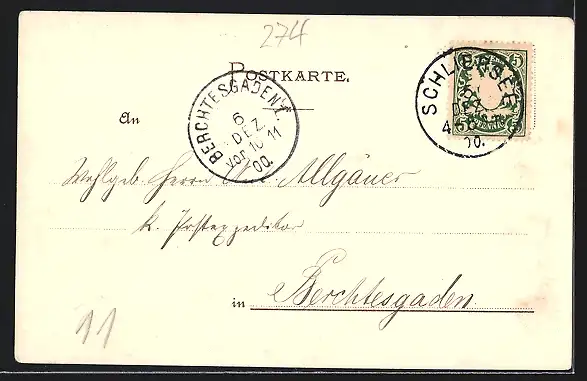 274
POSTKARTE.
SCHLIERSEE
5
DEZ.
4-5
00.
5
PFENNIG
BERCHTESGADEN 1.
6
DEZ.
VOR 10-11
00.
An
Wohlgeb. Herrn Allgäuer
k. Postexpeditor
in Berchtesgaden
11